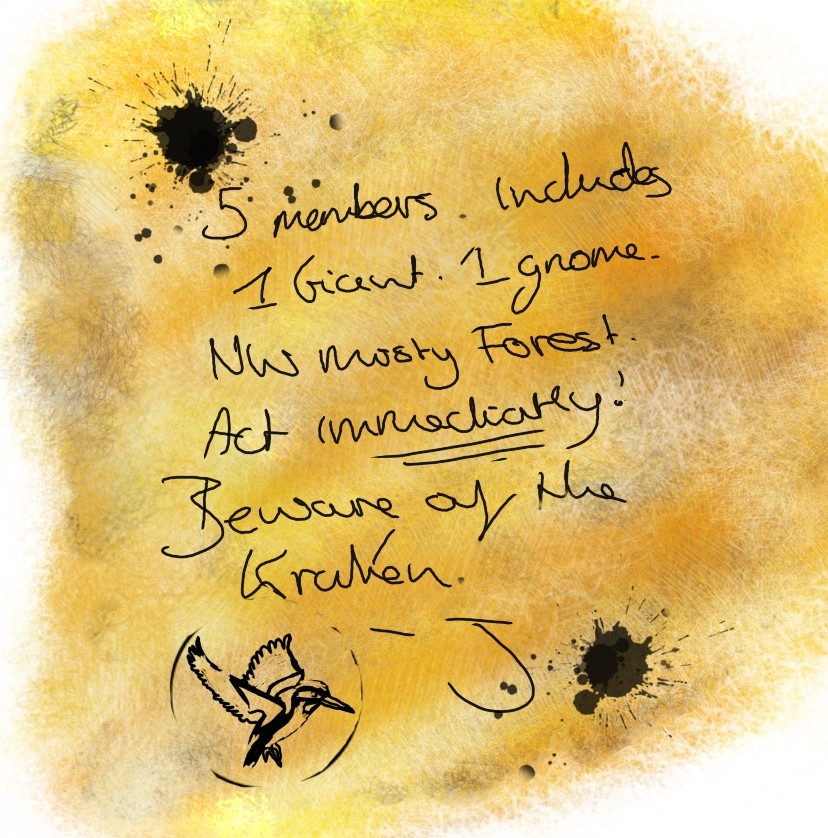 5 members. Includes
1 Giant. 1 gnome.
NW Misty Forest.
Act immediately!
Beware of the
Kraken.
- J